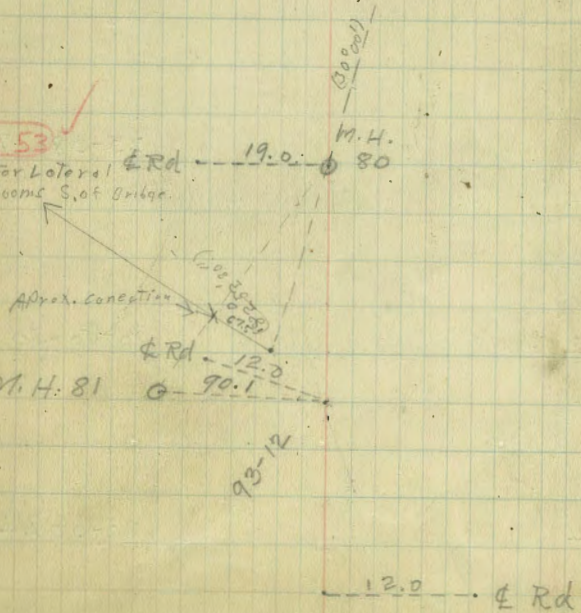 (30°00')
M.H.
53
₵ Rd 19.0 80
or Lateral
ooms S. of Bridge.
Aprox. conection
₵ Rd 12.0
M.H. 81 90.1
93-12
12.0 ₵ Rd